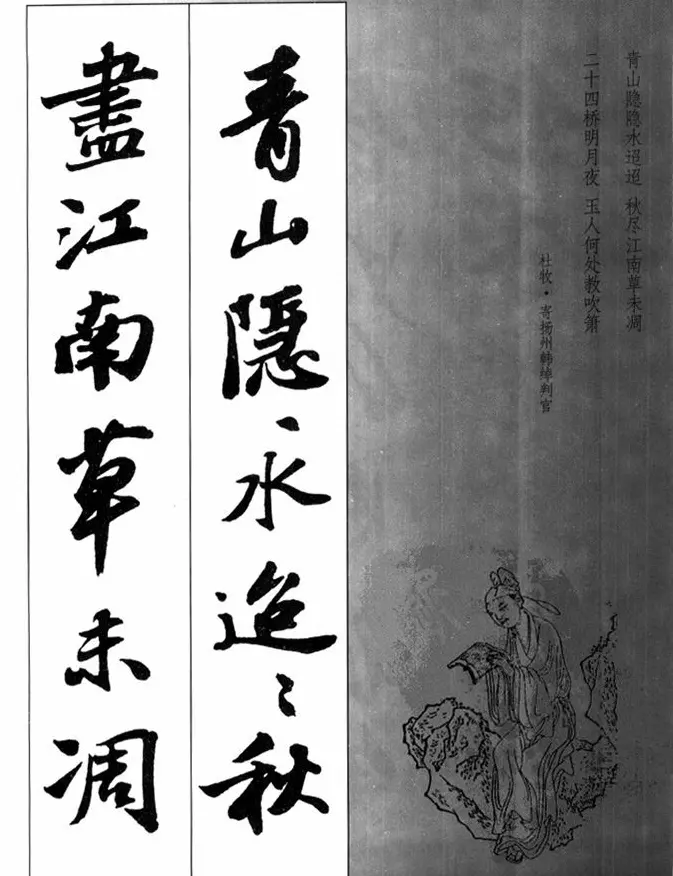 青山隐隐水迢迢 秋尽江南草未凋
二十四桥明月夜 玉人何处教吹箫
杜牧·寄扬州韩绰判官
青山隱〻水迢〻秋
盡江南草未凋